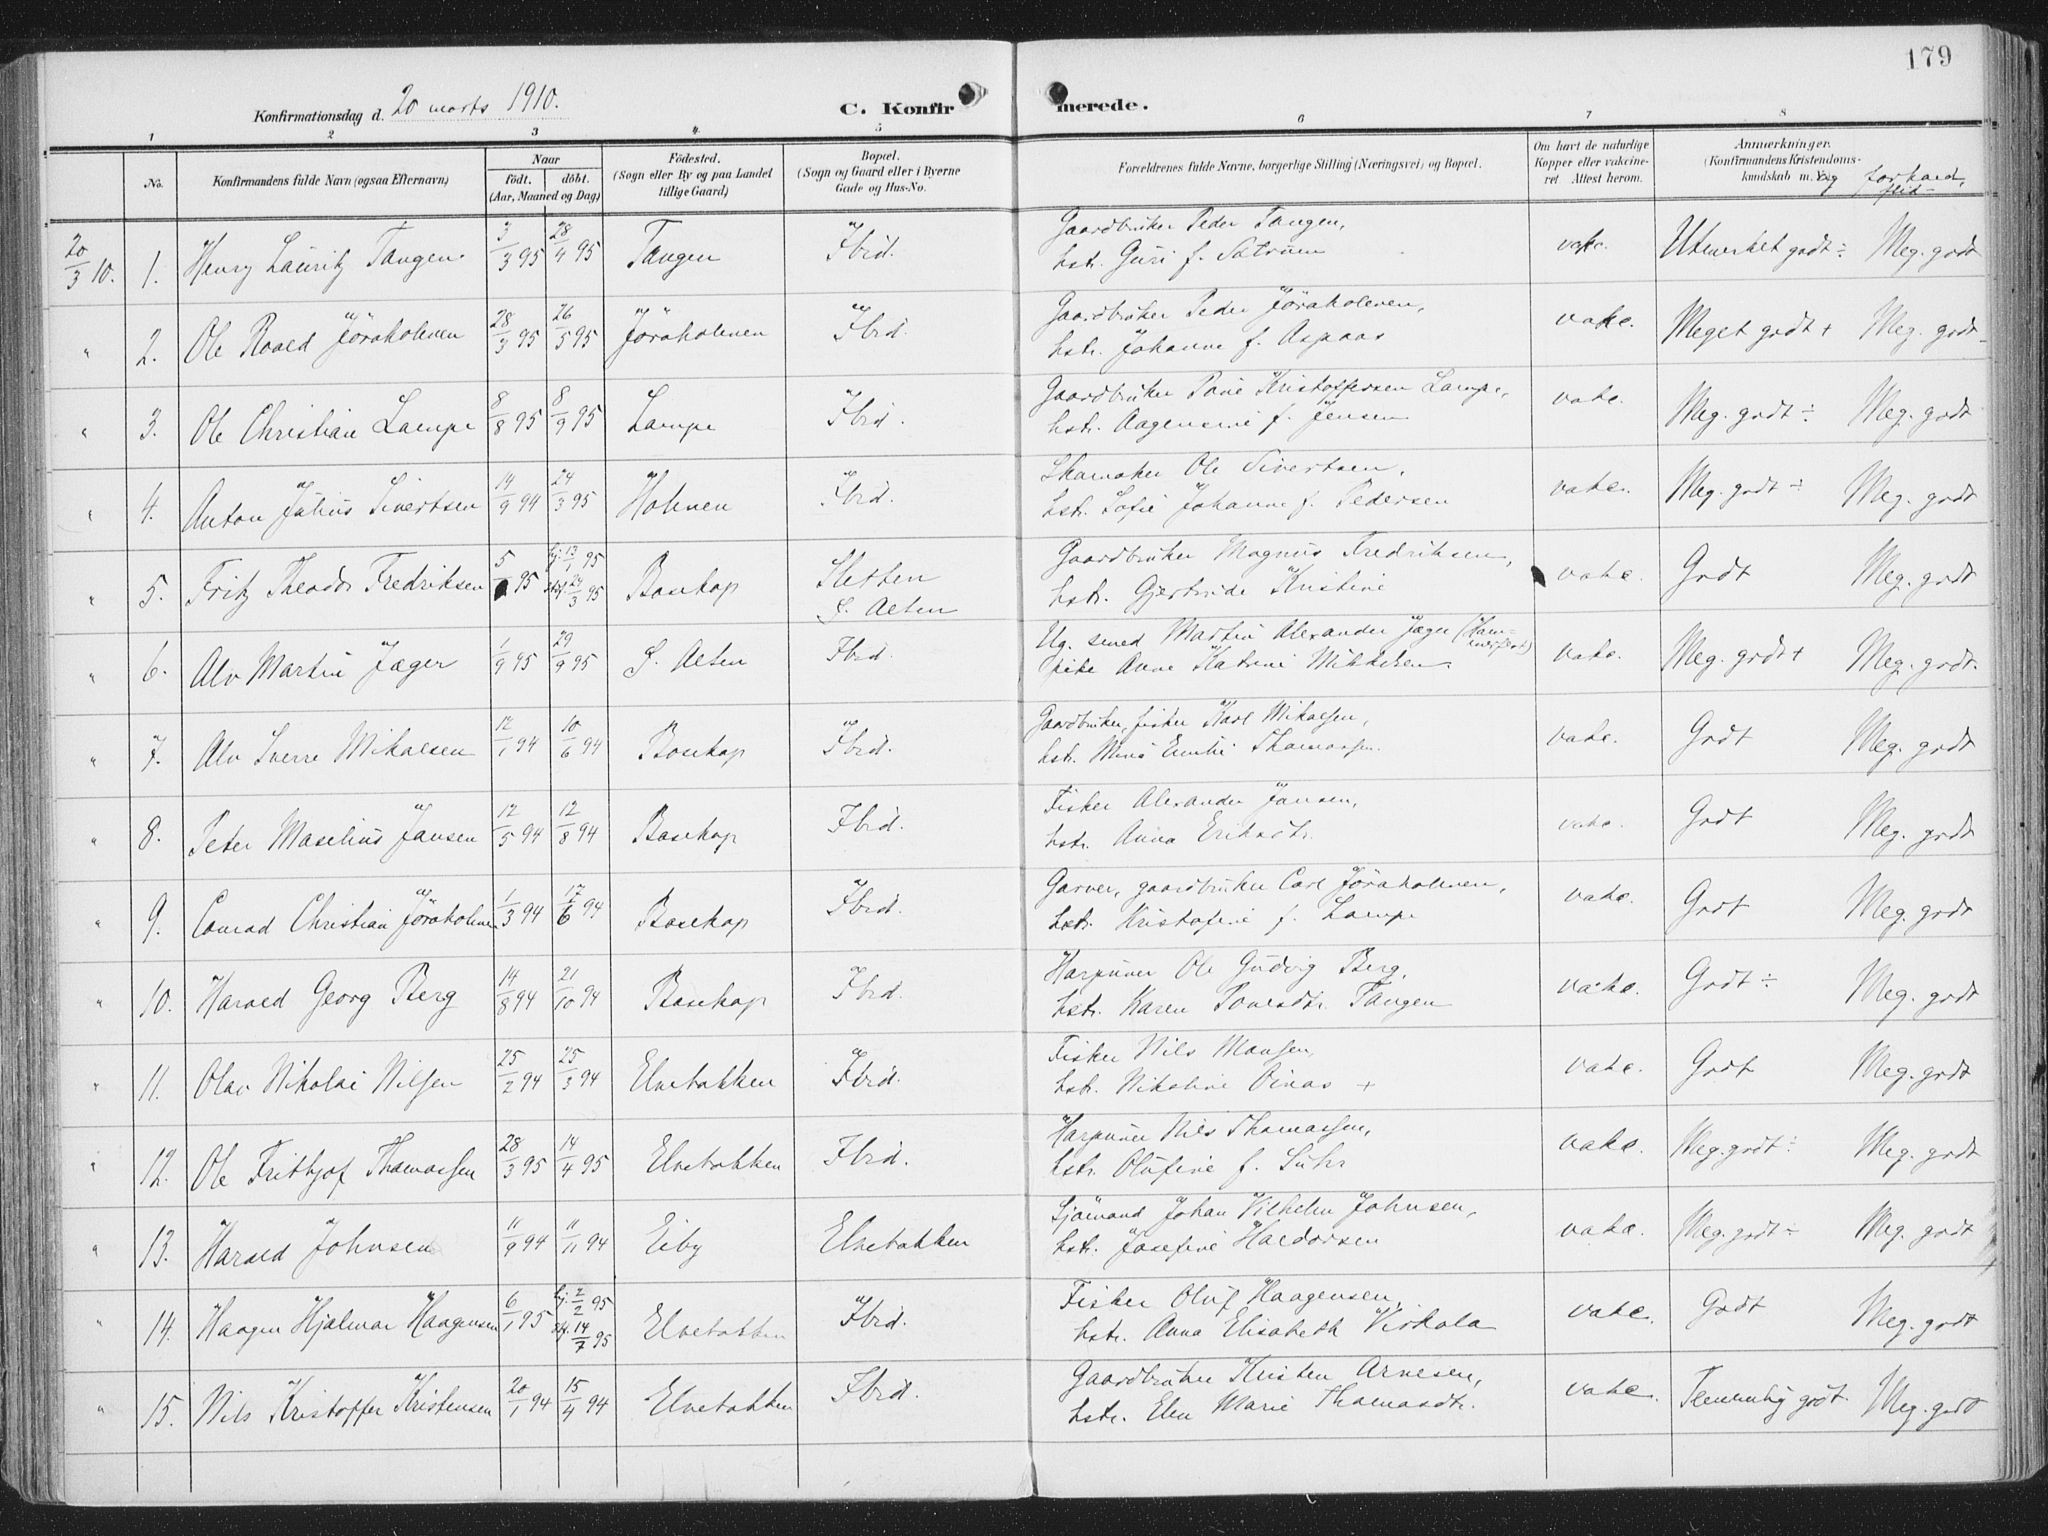 179
Konfirmationsdag d. 20 marts 1910.
C. Konfirmerede.
1 2 3 4 5 6 7 8
No.
Konfirmandens fulde Navn (ogsaa Efternavn)
Naar
født. døbt.
(Aar, Maaned og Dag)
Födested.
(Sogn eller By og paa Landet
tillige Gaard)
Bopæl.
(Sogn og Gaard eller i Byerne
Gade og Hus-No.
Forældrenes fulde Navne, borgerlige Stilling (Næringsvei) og Bopæl.
Om havt de naturlige
Kopper eller vakcine-
ret Attest herom.
Anmærkninger.
(Konfirmandens Kristendoms-
kundskab m. V. og forhold,
flid
20/3 10. 1. Henry Lauritz Tangen 3/3 95 28/4 95 Tangen Ibid. Gaardbruker Peder Tangen, vakc. Utmerket godt ÷ Meg. godt
hstr. Guri f. Sætrum
" 2. Ole Roald Jøraholmen 28/3 95 26/5 95 Jøraholmen Ibid. Gaardbruker Peder Jøraholmen, vakc. Meget godt + Meg. godt
hstr. Johanne f. Aspaas
" 3. Ole Christian Lampe 8/8 95 8/9 95 Lampe Ibid. Gaardbruker Kristoffersen Lampe, vakc. Meg. godt ÷ Meg. godt
hstr. f. Jensen
" 4. Anton Julius Sivertsen 14/9 94 24/3 95 Holmen Ibid. Skomaker Ole Sivertsen, vakc. Meg. godt ÷ Meg. godt
hstr. Sofie Johanne f. Pedersen
" 5. Fritz Theodor Fredriksen 5/ 95 hj. 13/1 95 Bosekop Sletten Gaardbruker Magnus Fredriksen, vakc. Godt Meg. godt
stf. 24/3 95 S. Alten hstr. Gjertrude Kristine
" 6. Alv Martin Jæger 1/9 95 29/9 95 S. Alten Ibid. Ug. smed Martin Alexander Jæger (Ham- vakc. Meg. godt + Meg. godt.
merfest) pike Anne Katrine Mikkelsen
" 7. Alv Sverre Mikalsen 12/1 94 10/6 94 Bosekop Ibid. Gaardbruker, fisker Karl Mikalsen, vakc. Godt Meg. godt
hstr. Emilie Thomassen.
" 8. Peter Maselius Jansen 12/5 94 12/8 94 Bosekop Ibid. Fisker Alexander Jansen, vakc. Godt Meg. godt
hstr. Anna Eriksdtr.
" 9. Conrad Christian Jøraholmen 1/3 94 17/6 94 Bosekop Ibid. Garver, gaardbruker Carl Jøraholmen, vakc. Godt Meg. godt
hstr. Kristofine f. Lampe
" 10. Harald Georg Berg 14/8 94 21/10 94 Bosekop Ibid. Harpuner Ole Gudvig Berg, vakc. Godt ÷ Meg. godt
hstr. Karen Tangen
" 11. Olav Nikolai Nilsen 25/2 94 25/3 94 Elvebakken Ibid. Fisker Nils Monsen, vakc. Godt Meg. godt
hstr. Nikoline +
" 12. Ole Frithjof Thomassen 28/3 95 14/4 95 Elvebakken Ibid. Harpuner Nils Thomassen, vakc. Meg. godt ÷ Meg. godt
hstr. Olufine f. Suhr
" 13. Harald Johnsen 11/9 94 11/11 94 Eiby Elvebakken Sjømand Johan Vilhelm Johnsen, vakc. Meg. godt ÷ Meg. godt
hstr. Josefine Haldorsen
" 14. Haagen Hjalmar Haagensen 6/1 95 hj. 2/2 95 Elvebakken Ibid. Fisker Oluf Haagensen, vakc. Godt Meg. godt
stf. 14/7 95 hstr. Anna Elisabeth Virkola
" 15. Nils Kristoffer Kristensen 20/1 94 15/4 94 Elvebakken Ibid. Gaardbruker Kristen Arnesen, vakc. Temmelig godt. Meg. godt
hstr. Elen Marie Thomasdtr.